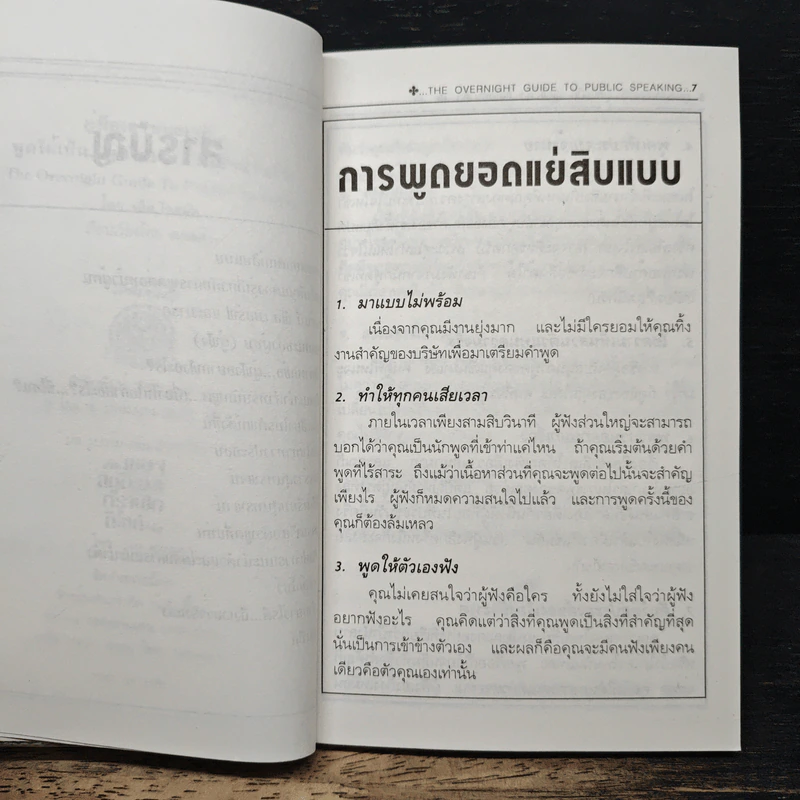 ✤...THE OVERNIGHT GUIDE TO PUBLIC SPEAKING...7
การพูดยอดแย่สิบแบบ
1. มาแบบไม่พร้อม
เนื่องจากคุณมีงานยุ่งมาก และไม่มีใครยอมให้คุณทิ้ง
งานสำคัญของบริษัทเพื่อมาเตรียมคำพูด
2. ทำให้ทุกคนเสียเวลา
ภายในเวลาเพียงสามสิบวินาที ผู้ฟังส่วนใหญ่จะสามารถ
บอกได้ว่าคุณเป็นนักพูดที่เข้าท่าแค่ไหน ถ้าคุณเริ่มต้นด้วยคำ
พูดที่ไร้สาระ ถึงแม้ว่าเนื้อหาส่วนที่คุณจะพูดต่อไปนั้นจะสำคัญ
เพียงไร ผู้ฟังก็หมดความสนใจไปแล้ว และการพูดครั้งนี้ของ
คุณก็ต้องล้มเหลว
3. พูดให้ตัวเองฟัง
คุณไม่เคยสนใจว่าผู้ฟังคือใคร ทั้งยังไม่ใส่ใจว่าผู้ฟัง
อยากฟังอะไร คุณคิดแต่ว่าสิ่งที่คุณพูดเป็นสิ่งที่สำคัญที่สุด
นั่นเป็นการเข้าข้างตัวเอง และผลก็คือคุณจะมีคนฟังเพียงคน
เดียวคือตัวคุณเองเท่านั้น